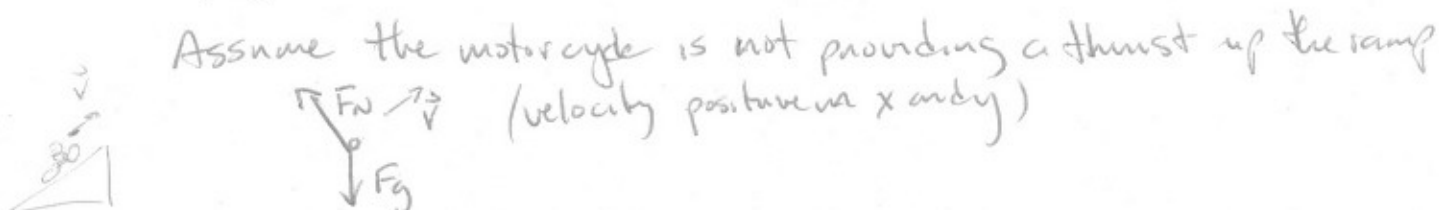 Assume the motorcycle is not providing a thrust up the ramp
v
FN v (velocity positive in x and y)
Fg